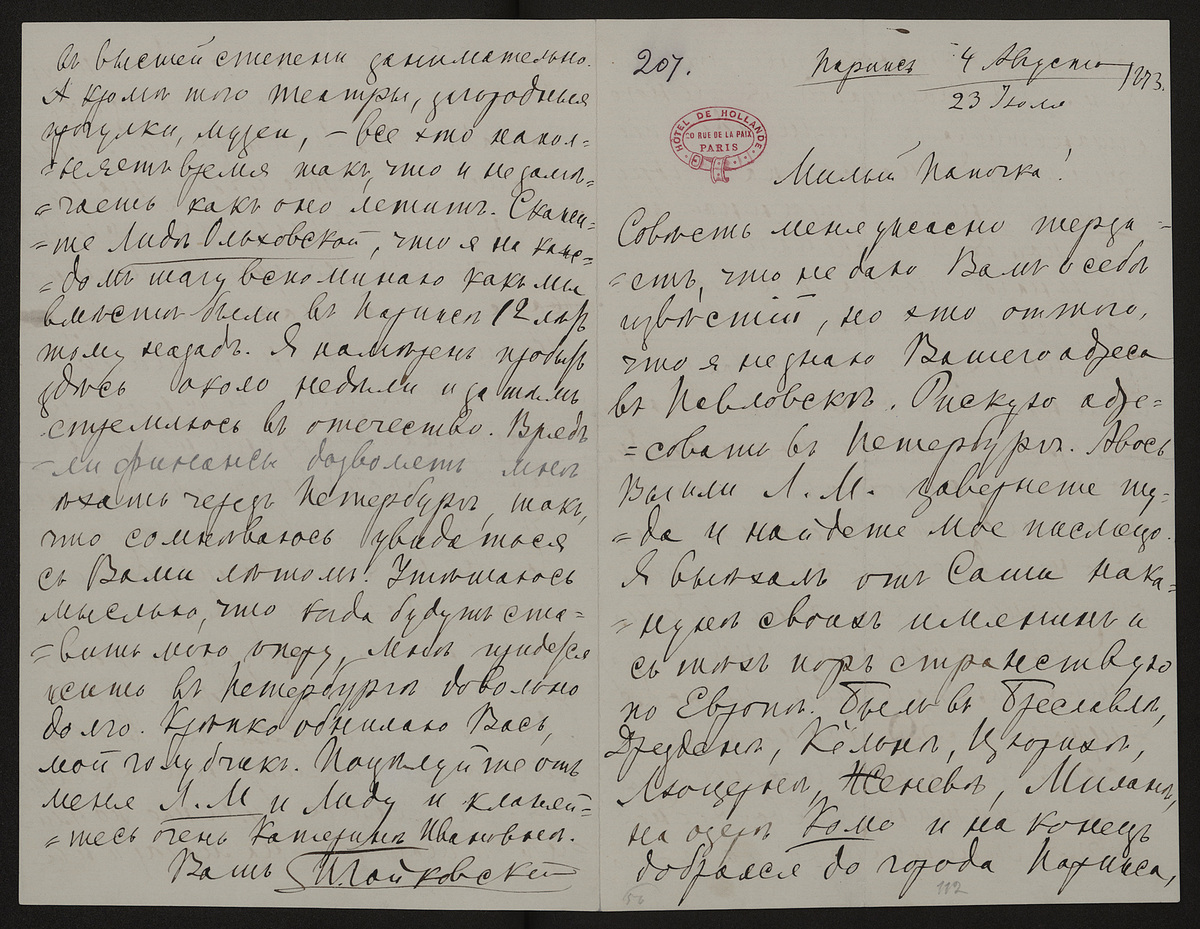 207.
Парижъ 4 Августа
23 Іюля 1873.
HÔTEL DE HOLLANDE
20 RUE DE LA PAIX
PARIS
Милый Папочка!
Совѣсть меня ужасно терза-
=етъ, что не даю Вамъ о себѣ
извѣстій, но это оттого,
что я не знаю Вашего адреса
въ Павловскѣ. Рискую адре=
=совать въ Петербургъ. Авось
Вы или Л. М. завернете ту-
=да и найдете мое письмецо.
Я выѣхалъ отъ Саши нака=
=нунѣ своихъ имянинъ и
съ тѣхъ поръ странствую
по Европѣ. Былъ въ Бреславлѣ,
Дрезденѣ, Кёльнѣ, Цюрихѣ,
Люцернѣ, Женевѣ, Миланѣ,
на озерѣ Комо и на конецъ
добрался до города Парижа,
112
въ высшей степени занимательно.
А кромѣ того театры, загородныя
прогулки, музеи, – все это напол=
=няетъ время такъ, что и не замѣ=
=чаешь какъ оно летитъ. Скажи=
=те Лидѣ Ольховской, что я на каж=
=домъ шагу вспоминаю какъ мы
вмѣстѣ были въ Парижѣ 12 лѣтъ
тому назадъ. Я намѣренъ пробыть
здѣсь около недѣли и затѣмъ
стремлюсь въ отечество. Врядъ
-ли финансы дозволятъ мнѣ
ѣхать черезъ Петербургъ, такъ,
что сомнѣваюсь увидаться
съ Вами лѣтомъ. Утѣшаюсь
мыслью, что когда будутъ ста=
=вить мою оперу, мнѣ придется
жить въ Петербургѣ довольно
долго. Крѣпко обнимаю Васъ,
мой голубчикъ. Поцѣлуйте отъ
меня Л. М и Лиду и кланяй=
=тесь очень Катеринѣ Ивановнѣ.
Вашъ П. Чайковский